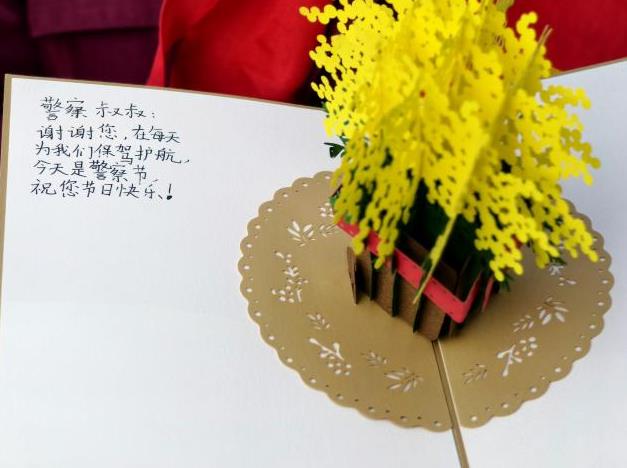 警察 叔叔：
谢谢您，在每天
为我们保驾护航，
今天是警察节，
祝您节日快乐！